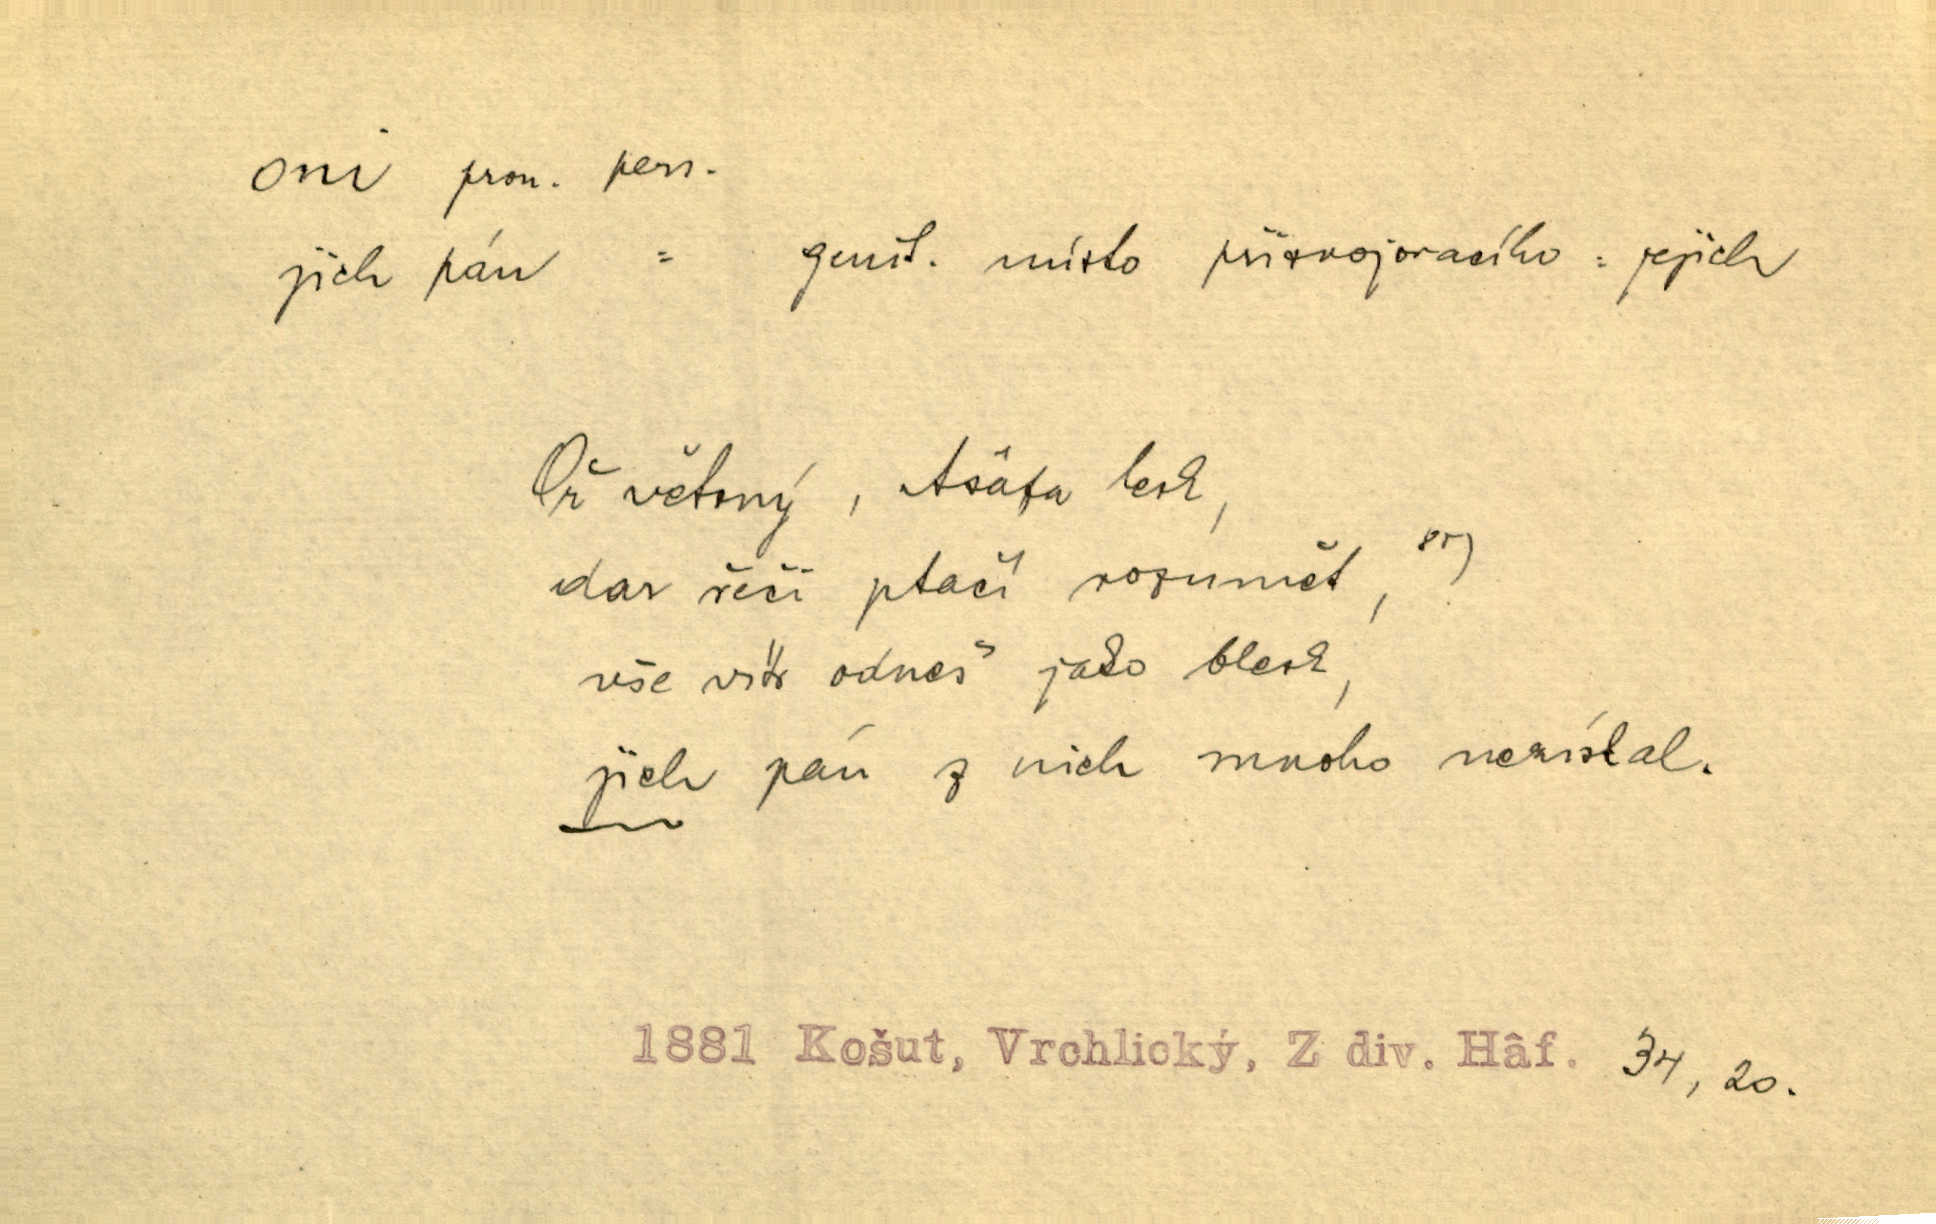 oni pron. pers.
jich pán = genit. místo přisvojovacího = jejich
Oř větrný, Asâfa lesk,
dar řeči ptačí rozumět, ⁸⁵⁾
vše vítr odnes' jako blesk,
jich pán z nich mnoho nezískal.
1881 Košut, Vrchlický, Z div. Hâf. 34, 20.